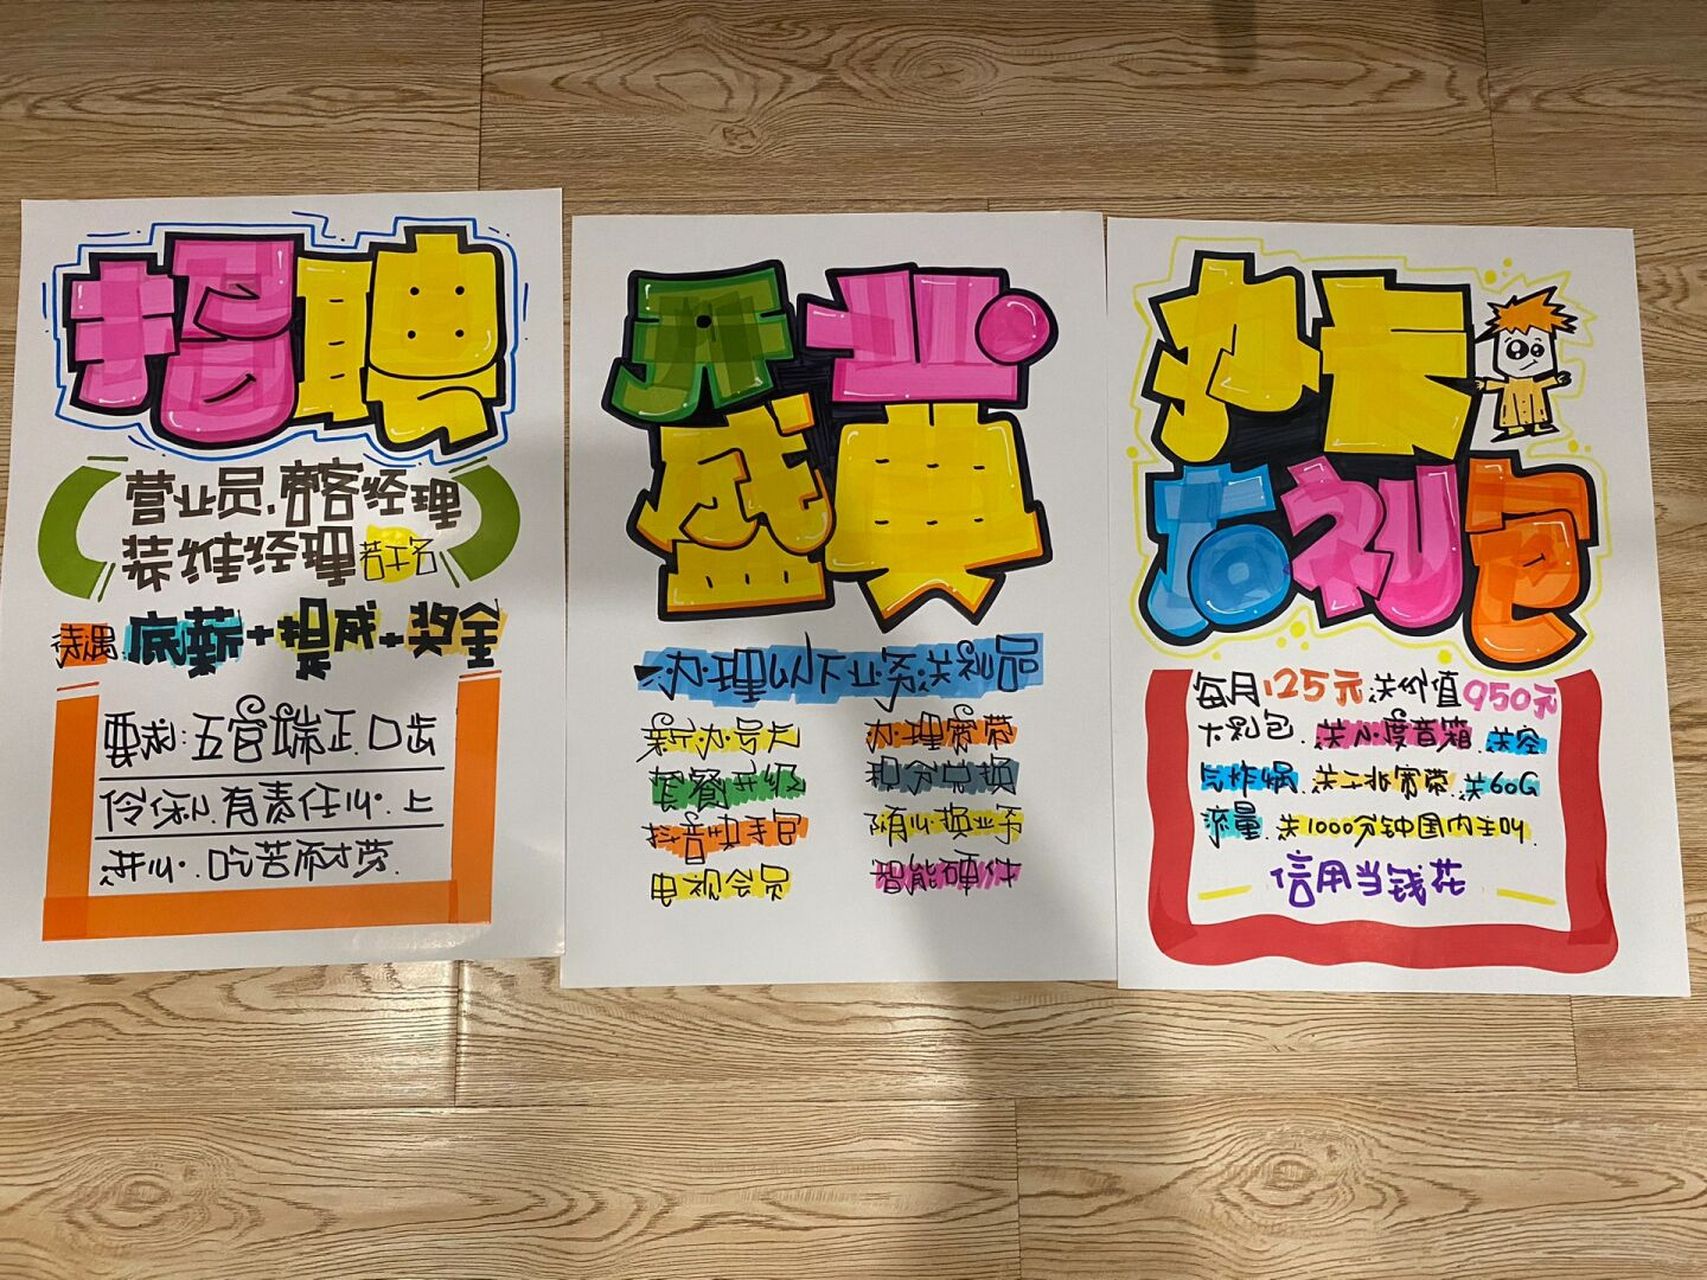 招聘
营业员.商客经理
装维经理若干名
待遇:底薪+提成+奖金
要求:五官端正.口齿
伶俐.有责任心.上
进心.吃苦耐劳.
开业
盛典
办理以下业务送礼品
新办号卡
办理宽带
套餐升级
积分兑换
抖音助手包
随心换业务
电视会员
智能硬件
办卡
大礼包
每月125元送价值950元
大礼包.送小度音箱.送空
气炸锅.送千兆宽带.送60G
流量.送1000分钟国内主叫.
信用当钱花